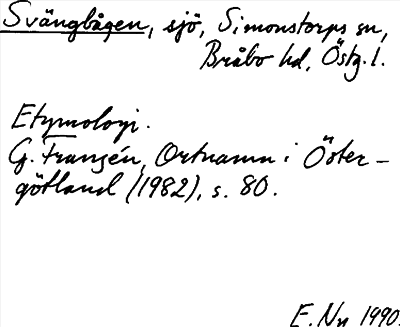 Svängbågen, sjö, Simonstorps sn,
Bråbo hd, Östg. l.
Etymologi.
G. Franzén, Ortnamn i Öster-
götland (1982), s. 80.
E. Ny 1990.